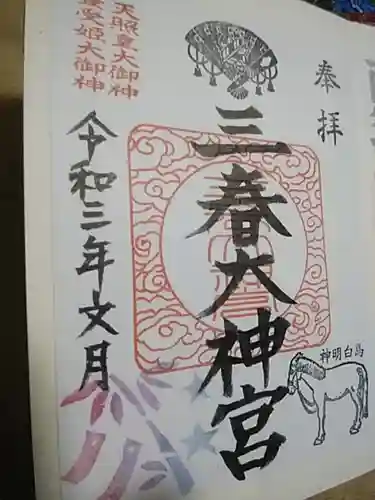 奉拝
三春大神宮
神明白馬
天照皇大御神
豊受姫大御神
令和三年文月